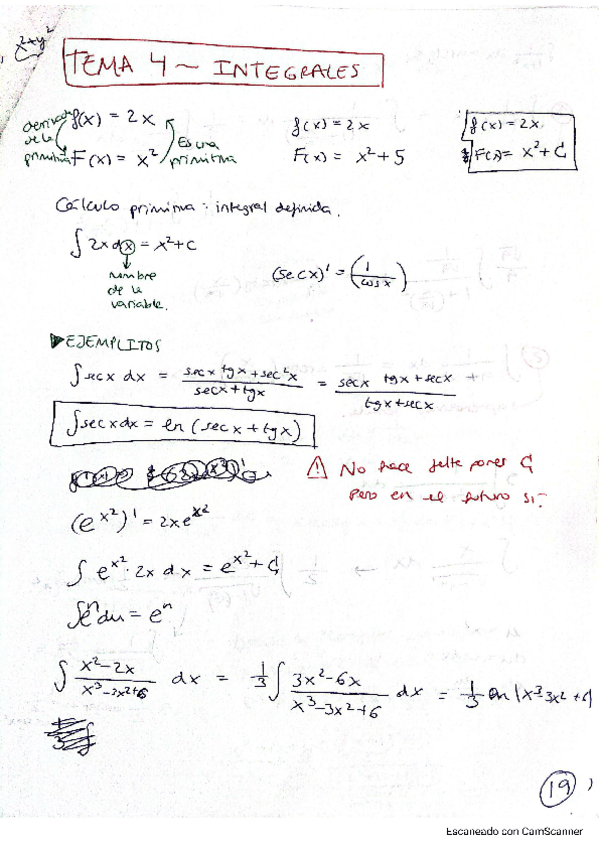 x²xy²
TEMA 4 ~ INTEGRALES
derivada de la primitiva
f(x) = 2x
F(x) = x²
Es una primitiva
f(x) = 2x
F(x) = x² + 5
f(x) = 2x
F(x) = x² + C
Cálculo primitiva : integral definida.
∫ 2x dx = x² + C
nombre
de la
variable.
(sec x)' = (1/cos x)
EJEMPLITOS
∫ sec x dx = (sec x tg x + sec² x)/(sec x + tg x) = (sec x tg x + sec x)/(tg x + sec x)
∫ sec x dx = ln (sec x + tg x)
⚠ No hace falta poner C
pero en el futuro si.
(e^x²)' = 2x e^x²
∫ e^x² · 2x dx = e^x² + C
∫ e^u du = e^u
∫ (x² - 2x)/(x³ - 3x² + 6) dx = 1/3 ∫ (3x² - 6x)/(x³ - 3x² + 6) dx = 1/3 ln |x³ - 3x² + 6|
19
Escaneado con CamScanner